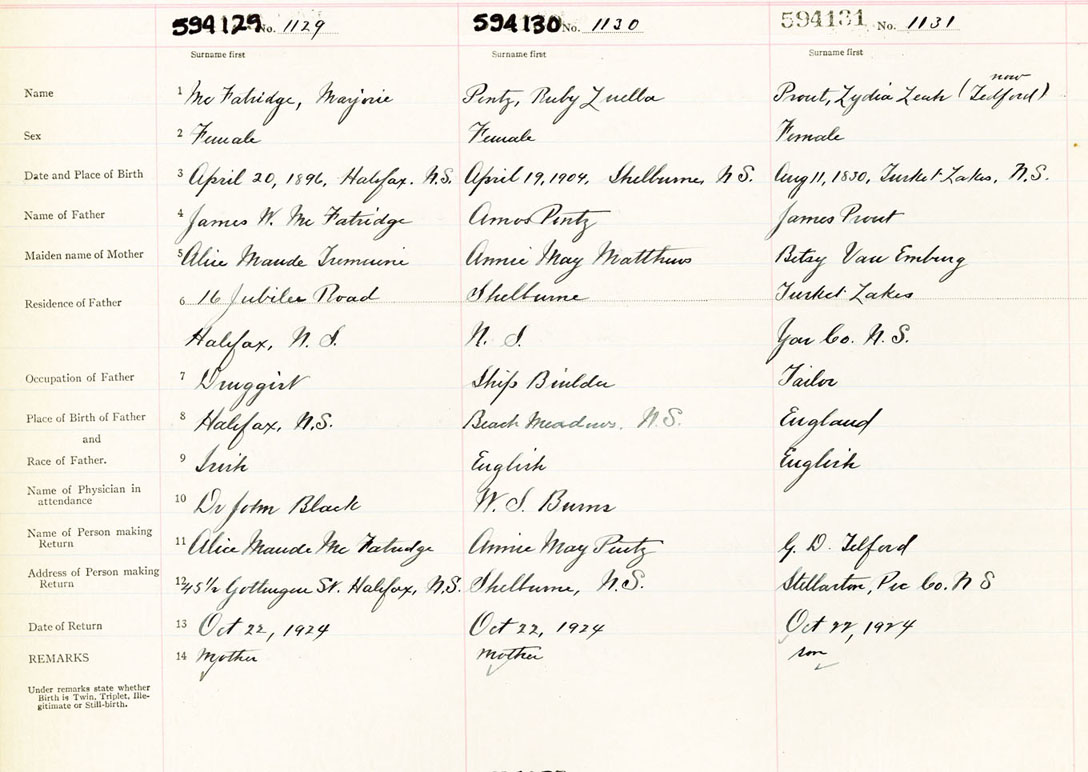 594129 No. 1129 594130 No. 1130 594131 No. 1131
Surname first Surname first Surname first
Name 1 Mc Fatridge, Marjorie Pentz, Ruby Luella Prout, Lydia Leah (now Tedford)
Sex 2 Female Female Female
Date and Place of Birth 3 April 20, 1896, Halifax. N.S. April 19, 1904, Shelburne, N S. Aug 11, 1830, Tusket Lakes, N.S.
Name of Father 4 James W. Mc Fatridge Amos Pentz James Prout
Maiden name of Mother 5 Alice Maude Annie May Matthews Betsy Van Emburg
Residence of Father 6 16 Jubilee Road Shelburne Tusket Lakes
Halifax, N. S. N. S. Yar Co. N. S.
Occupation of Father 7 Druggist Ship Builder Tailor
Place of Birth of Father 8 Halifax, N.S. Beach Meadows. N.S. England
and
Race of Father. 9 Irish English English
Name of Physician in
attendance 10 Dr John Black W. S. Burns
Name of Person making
Return 11 Alice Maude Mc Fatridge Annie May Pentz G. D. Telford
Address of Person making
Return 12 45½ Gottingen St. Halifax, N.S. Shelburne, N.S. Stellarton, Pic Co. N S
Date of Return 13 Oct 22, 1924 Oct 22, 1924 Oct 22, 1924
REMARKS 14 Mother Mother son
Under remarks state whether
Birth is Twin, Triplet, Ille-
gitimate or Still-birth.